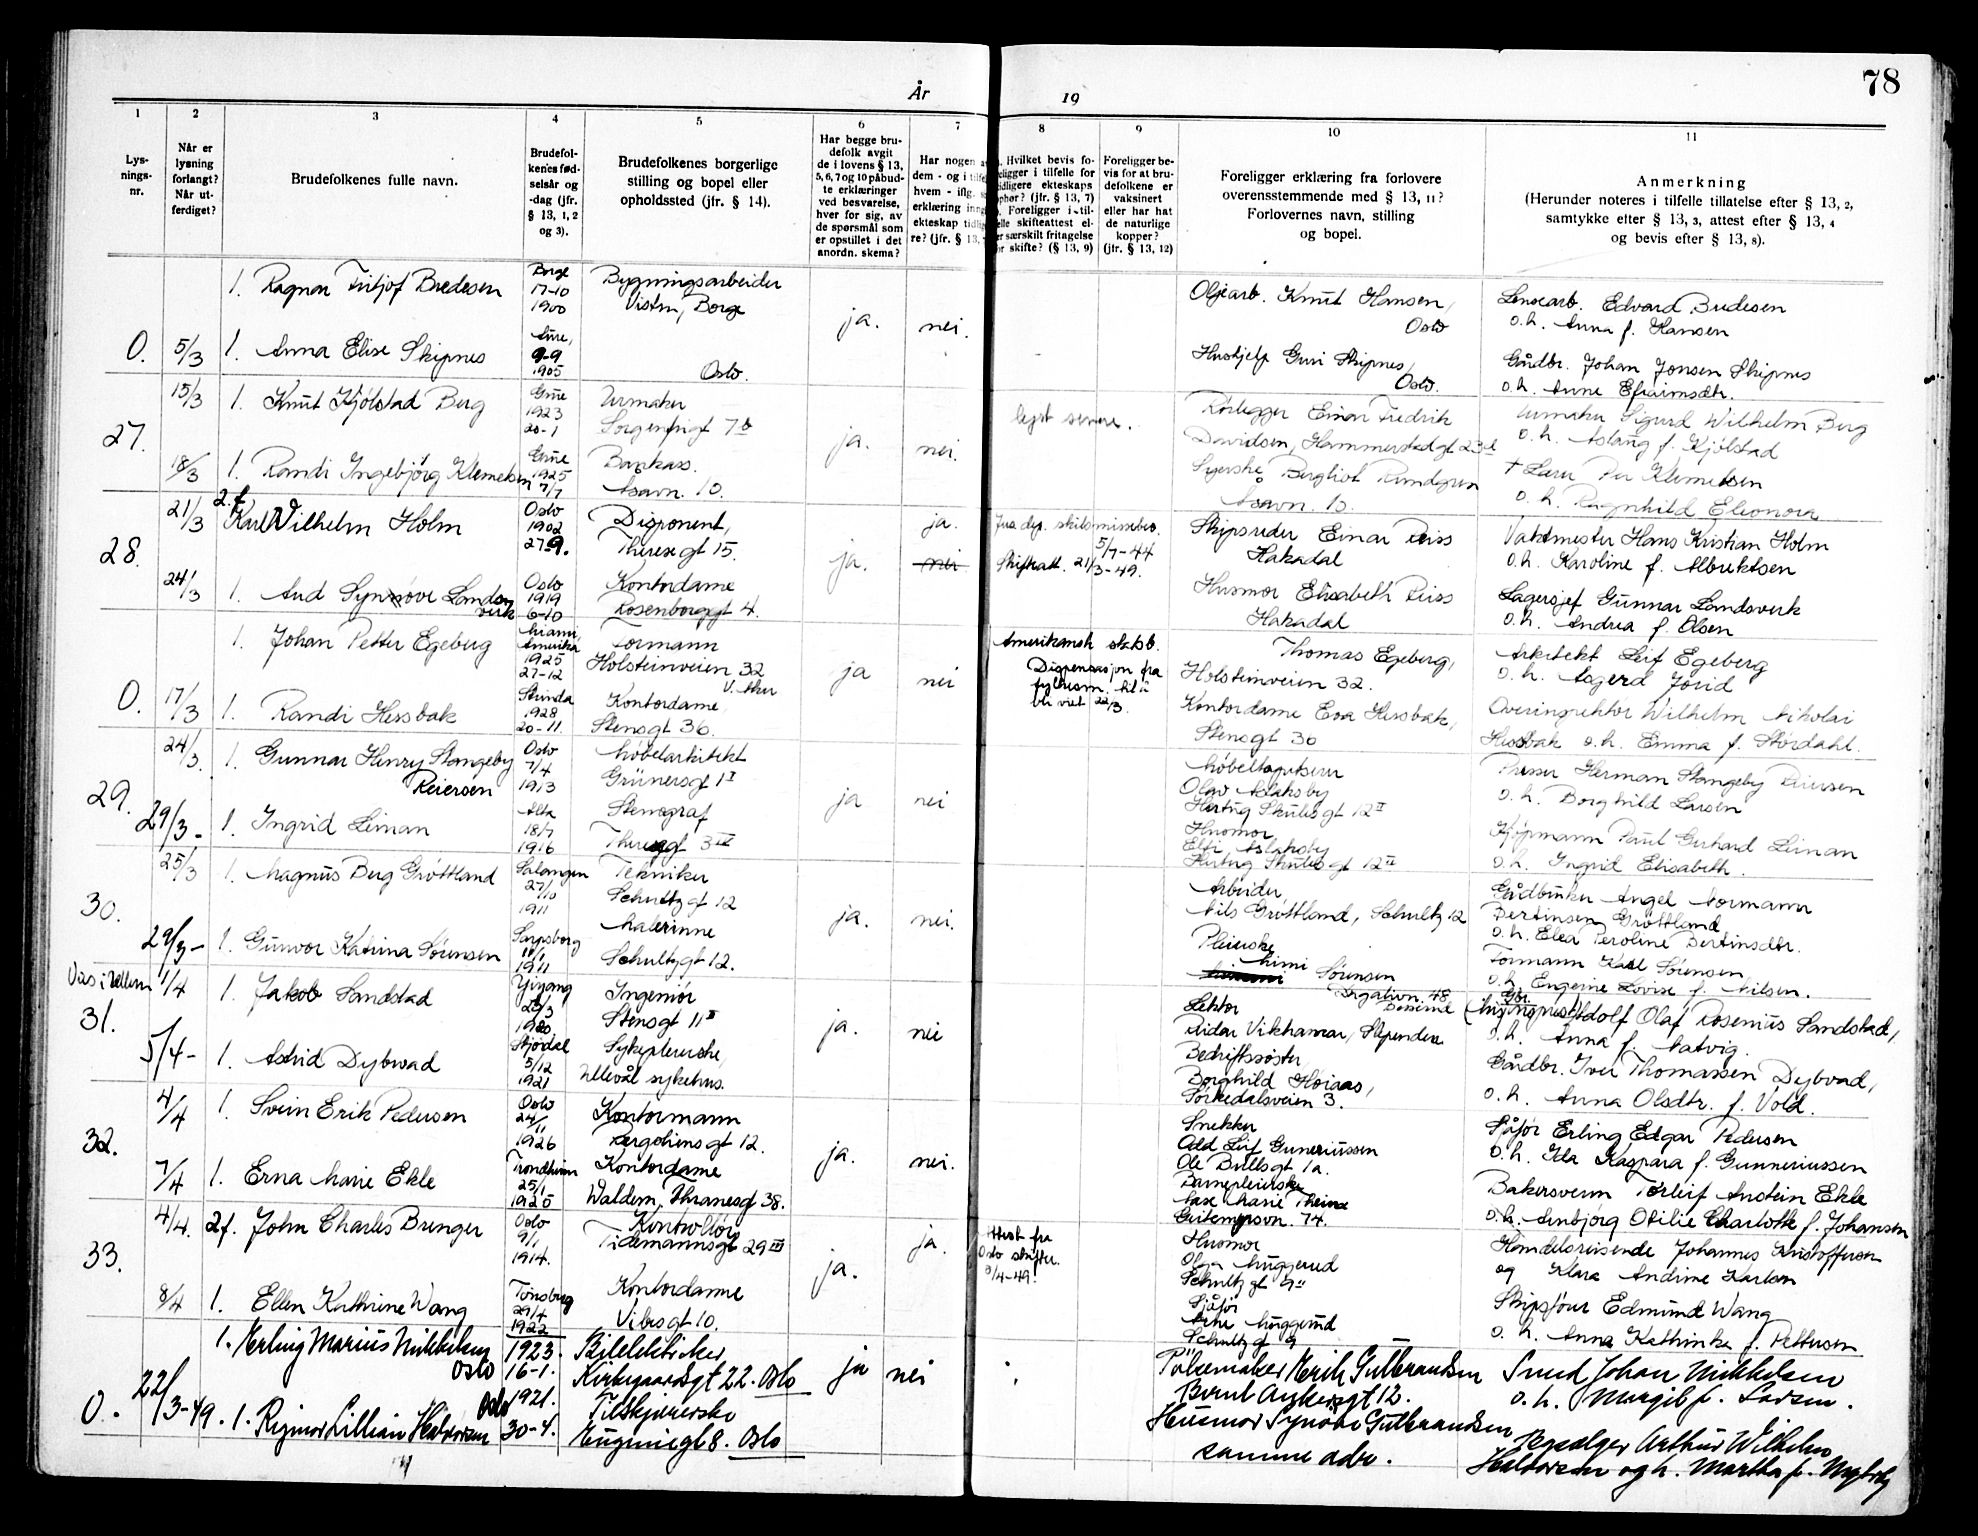 År 19
78
1
2
3
4
5
6
7
8
9
10
11
Lys-
nings-
nr.
Når er
lysning
forlangt?
Når ut-
ferdiget?
Brudefolkenes fulle navn.
Brudefol-
kenes fød-
selsår og
-dag (jfr.
§ 13, 1, 2
og 3).
Brudefolkenes borgerlige
stilling og bopel eller
opholdssted (jfr. § 14).
Har begge bru-
defolk avgit
de i lovens § 13,
5, 6, 7 og 10 påbud-
te erklæringer
ved besvarelse,
hver for sig, av
de spørsmål som
er opstillet i det
anordn. skema?
Har nogen
dem - og i
hvem - iflg.
erklæring
ekteskap
re? (jfr. § 13,
Hvilket bevis fo-
i tilfelle for
ekteskaps
(jfr. § 13, 7)
Foreligger i til-
skifteattest el-
særskilt fritagelse
skifte? (§ 13, 9)
Foreligger be-
vis for at bru-
defolkene er
vaksinert
eller har hat
de naturlige
kopper?
(jfr. § 13, 12)
Foreligger erklæring fra forlovere
overensstemmende med § 13, 11?
Forlovernes navn, stilling
og bopel.
Anmerkning
(Herunder noteres i tilfelle tillatelse efter § 13, 2,
samtykke efter § 13, 3, attest efter § 13, 4
og bevis efter § 13, 8).
1. Ragnar Fritjof Bredesen
Borge
17-10
1900
Bygningsarbeider
Borge
ja.
nei.
Knut Hansen,
Oslo
Edvard Bredesen
o.h. Anna f. Hansen
0. 5/3 1. Anna Elise Skipnes
9-9
1905
Oslo.
Hushjelp Guri Skipnes,
Oslo.
Gårdbr. Johan Jonsen Skipnes
o.h. Anne Efraimsdtr.
27.
15/3 1. Knut Kjølstad Berg
Grue
1923
20-1
Urmaker
Sorgenfrigt 7b
ja.
nei.
lyst senere.
Rørlegger Einar Fredrik
Davidsen, Hammerstadgt
Urmaker Sigurd Wilhelm Berg
o.h. Aslaug f. Kjølstad
18/3 1. Randi Ingebjørg Klemetsen
Grue
1925
7/7
Bankass.
Åsavn. 10.
Syerske Bergliot Rundgren
Åsavn. 10.
† Lærer Per Klemetsen
o.h. Ragnhild Eleonora
28.
21/3 2.f. Karl Vilhelm Holm
Oslo
1902
27-9.
Disponent,
Theresgt 15.
ja.
ja.
nei
5/7-44
Skifteatt. 21/3-49.
Skipsreder Einar Riis
Hakadal
Vaktmester Hans Kristian Holm
o.h. Karoline f. Albrektsen
24/3 1. Aud Synnøve Landsverk
Oslo
1919
6-10
Kontordame
Rosenborggt 4.
Husmor Elisabeth Riis
Hakadal
Lagersjef Gunnar Landsverk
o.h. Andrea f. Olsen
1. Johan Petter Egeberg
Miami,
Amerika
1925
27-12
Formann
Holsteinveien 32
V. Aker
ja
nei
Amerikansk statsb.
Dispensasjon fra
fylkesm. til å
bli viet 22/3.
Thomas Egeberg,
Holsteinveien 32.
Arkitekt Leif Egeberg
o.h. Asgerd Jorid
0. 17/3 1. Randi Hessbak
Strinda
1928
20-11.
Kontordame
Stensgt 36.
Kontordame Eva Hessbak,
Stensgt 36
Overinspektør Wilhelm Nikolai
Hessbak o.h. Emma f. Stördahl.
29.
24/3. 1. Gunnar Henry Stangeby
Reiersen
Oslo
7/4
1913
Møbelarkitekt
Grünersgt 1 II
ja
nei
Møbeltapetserer
Olav Aslaksby
Hertug Skulesgt 12 II
Herman Stangeby Reiersen
o.h. Borghild Larsen
29/3- 1. Ingrid Leinan
Alta
18/7
1916
Stenograf
Theresgt 3 IV
Husmor
Elfi Aslaksby
Hertug Skulesgt 12 II
Kjøpmann Paul Gerhard Leinan
o.h. Ingrid Elisabeth.
30.
25/3 1. Magnus Berg Grøttland
Salangen
27/10
1911
Tekniker
Schultzgt 12
ja.
nei.
Arbeider,
Nils Grøttland, Schultzgt 12
Gårdbruker Angel Normann
Bertinsen Grøttland
o.h. Elea Peroline Bertinsdtr.
29/3- 1. Gunvor Katrina Sørensen
Sarpsborg
1911
Malerinne
Schultzgt 12.
Pleierske
Mimi Sørensen
Formann Karl Sørensen
o.h. Engerine Lovise f. Nilsen.
31.
1/4 1. Jakob Sandstad
Yiyang
1920
Ingeniør
Stensgt 11 II
ja.
nei
Lektor
Reidar Vikhamar, Stipendier
Adolf Olaf Rosenius Sandstad,
o.h. Anna f. Natvig.
5/4- 1. Astrid Dybwad
Stjørdal
5/12
1921
Sykepleierske,
Ullevål sykehus.
Bedriftssøster
Borghild Høiaas,
Sørkedalsveien 3.
Gårdbr. Iver Thomassen Dybvad,
o.h. Anna Olsdtr. f. Vold.
32.
4/4 1. Svein Erik Pedersen
Oslo
24/11
1926
Kontormann
Bergsliensgt 12.
ja.
nei.
Snekker
Odd Leif Gunneriussen
Ole Bullsgt 1a.
Sjåfør Erling Edgar Pedersen
o.h. Ida Kaspara f. Gunneriussen
7/4 1. Erna Marie Ekle
Trondheim
25/1
1925
Kontordame
Waldem. Thranesgt 38.
Barnepleierske
Aase Marie Theine
Geitemyrsvn. 74.
Bakersvenn Torleif Anstein Ekle
o.h. Arnbjørg Otilie Charlotte f. Johansen
33.
4/4. 2f. John Charles Brenger
Oslo
9/1
1914.
Kontrollør
Tidemannsgt 29 III
ja.
ja.
Attest fra
Oslo skifter.
Husmor
Olga Muggerud
Schultzgt 9 II
Handelsreisende Johannes Kristoffersen
og Klara Andrine Karlsen
8/4 1. Ellen Kathrine Wang
Tønsberg
29/4
1922
Kontordame
Vibesgt 10.
Sjåfør
Arne Muggerud
Schultzgt 9 II
Skipsfører Edmund Wang
o.h. Anna Kathinka f. Pettersen
1. Erling Marius Mikkelsen
Oslo
1923.
16-1.
Kirkegaardsgt 22. Oslo
ja
nei
Pølsemaker Henrik Gulbrandsen
Bernt Ankersgt 12.
Smed Johan Mikkelsen
o.h. Margit f. Larsen.
0. 22/3-49. 1. Rigmor Lillian Halvorsen
Oslo
1921.
30-4.
Tilskjærerske
Eugeniegt 8. Oslo
Husmor Synøve Gulbrandsen
samme adr.
Arthur Wilhelm
Halvorsen og h. Martha f.